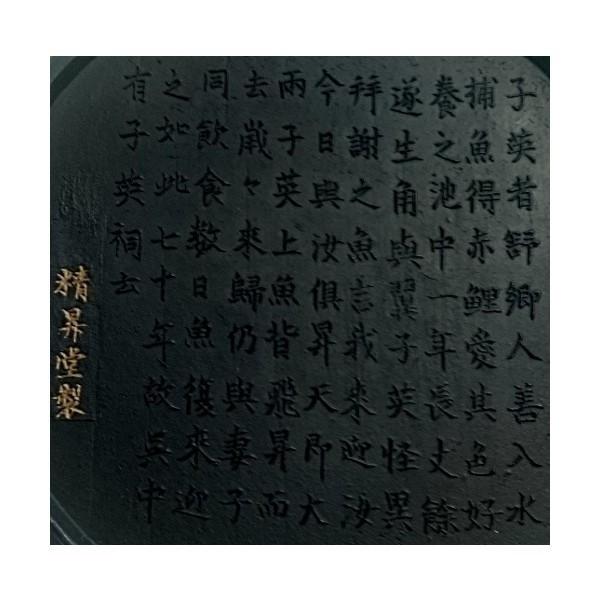 子英者舒鄉人善入水
捕魚得赤鯉愛其色好
養之池中一年長丈餘
遂生角與翼子英怪異
拜謝之魚言我來迎汝
今日與汝俱昇天即大
兩子英上魚背飛昇而
去歲々來歸仍與妻子
同飲食數日魚復來迎
之如此七十年故吳中
有子英祠云
精昇堂製